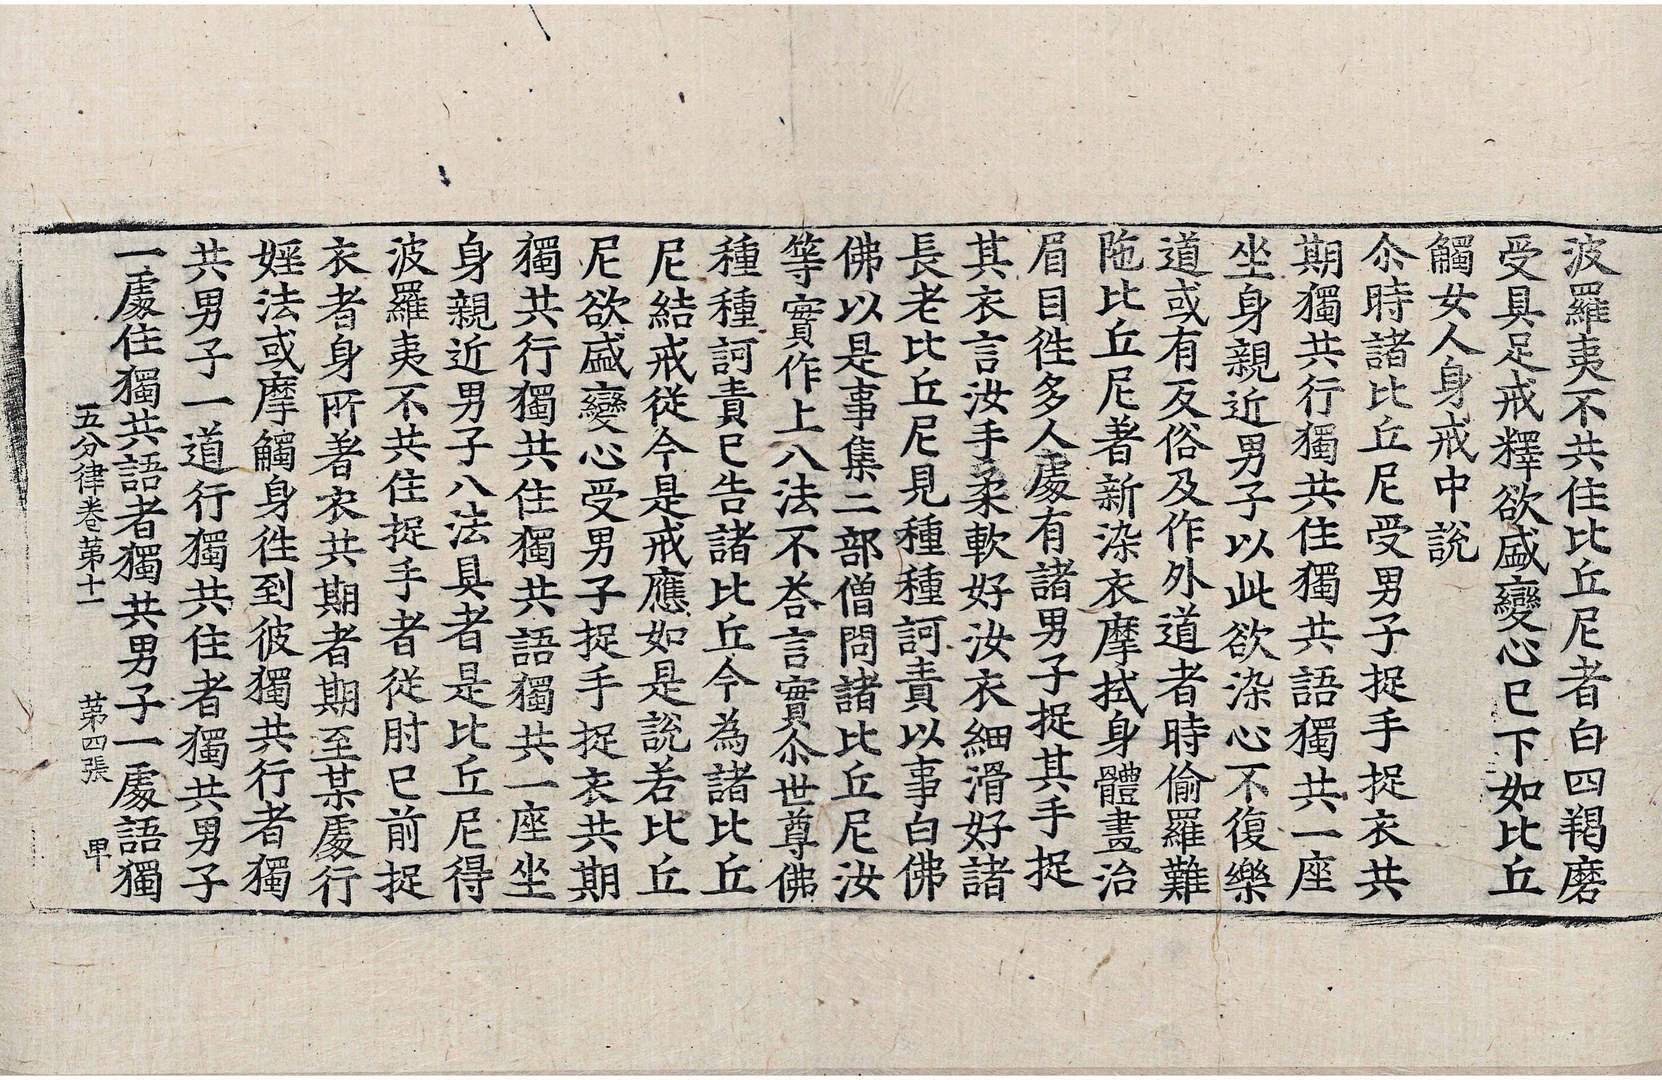 波羅夷不共住比丘尼者白四羯磨
受具足戒釋欲盛變心已下如比丘
觸女人身戒中說
尒時諸比丘尼受男子捉手捉衣共
期獨共行獨共住獨共語獨共一座
坐身親近男子以此欲染心不復樂
道或有反俗及作外道者時偷羅難
陁比丘尼著新染衣摩拭身體畫治
眉目往多人處有諸男子捉其手捉
其衣言汝手柔軟好汝衣細滑好諸
長老比丘尼見種種訶責以事白佛
佛以是事集二部僧問諸比丘尼汝
等實作上八法不荅言實尒世尊佛
種種訶責已告諸比丘今為諸比丘
尼結戒從今是戒應如是說若比丘
尼欲盛變心受男子捉手捉衣共期
獨共行獨共住獨共語獨共一座坐
身親近男子八法具者是比丘尼得
波羅夷不共住捉手者從肘已前捉
衣者身所著衣共期者期至某處行
婬法或摩觸身往到彼獨共行者獨
共男子一道行獨共住者獨共男子
一處住獨共語者獨共男子一處語獨
五分律卷苐十一 苐四張 甲